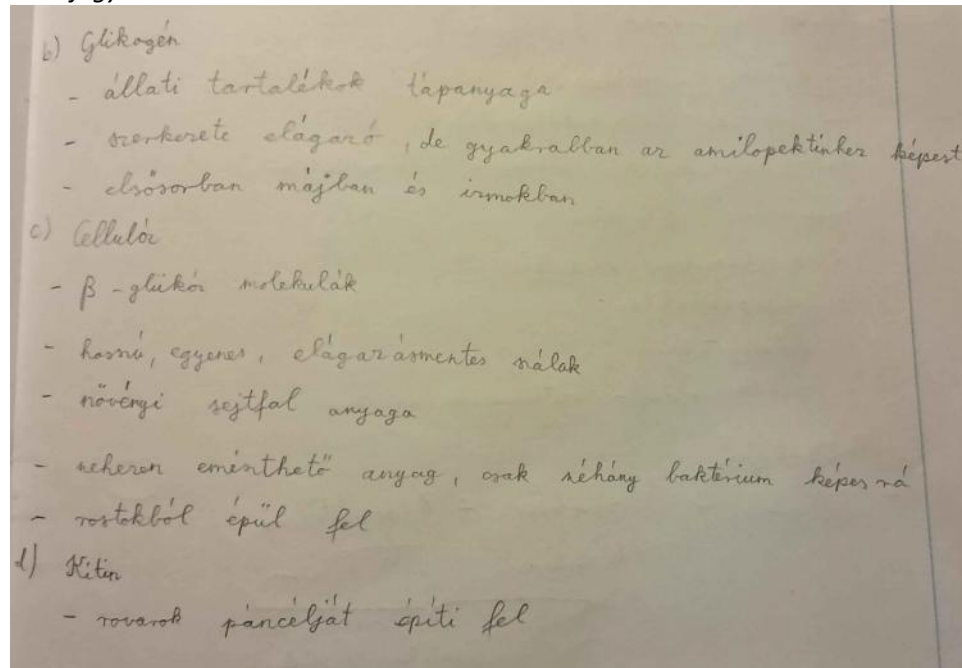 b) Glikogén
- állati tartalékok tápanyaga
- szerkezete elágazó, de gyakrabban az amilopektinhez képest
- elsősorban májban és izmokban
c) Cellulóz
- β-glükóz molekulák
- hosszú, egyenes, elágazásmentes szálak
- növényi sejtfal anyaga
- nehezen emészthető anyag, csak néhány baktérium képes rá
- rostokból épül fel
d) Kitin
- rovarok páncélját építi fel